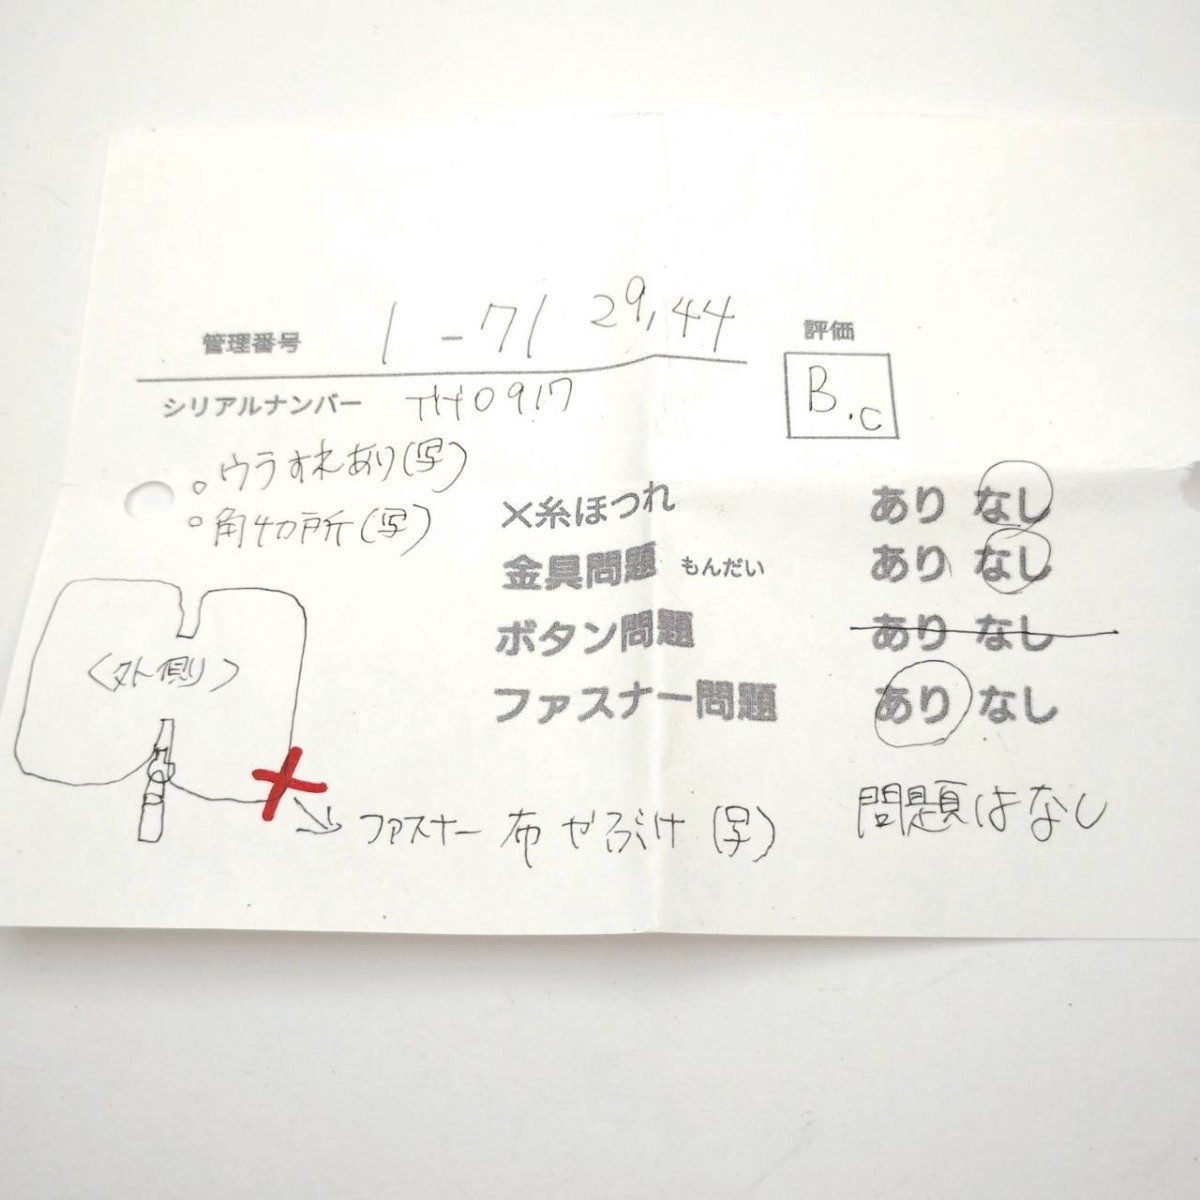 管理番号 1-71 29,44
評価
シリアルナンバー TH0917
B.C
。ウラすれあり(写)
。角切所(写)
×糸ほつれ あり なし
金具問題 もんだい あり なし
ボタン問題 あり なし
ファスナー問題 あり なし
〈外側〉
ファスナー 布 やぶけ (写)
問題はなし